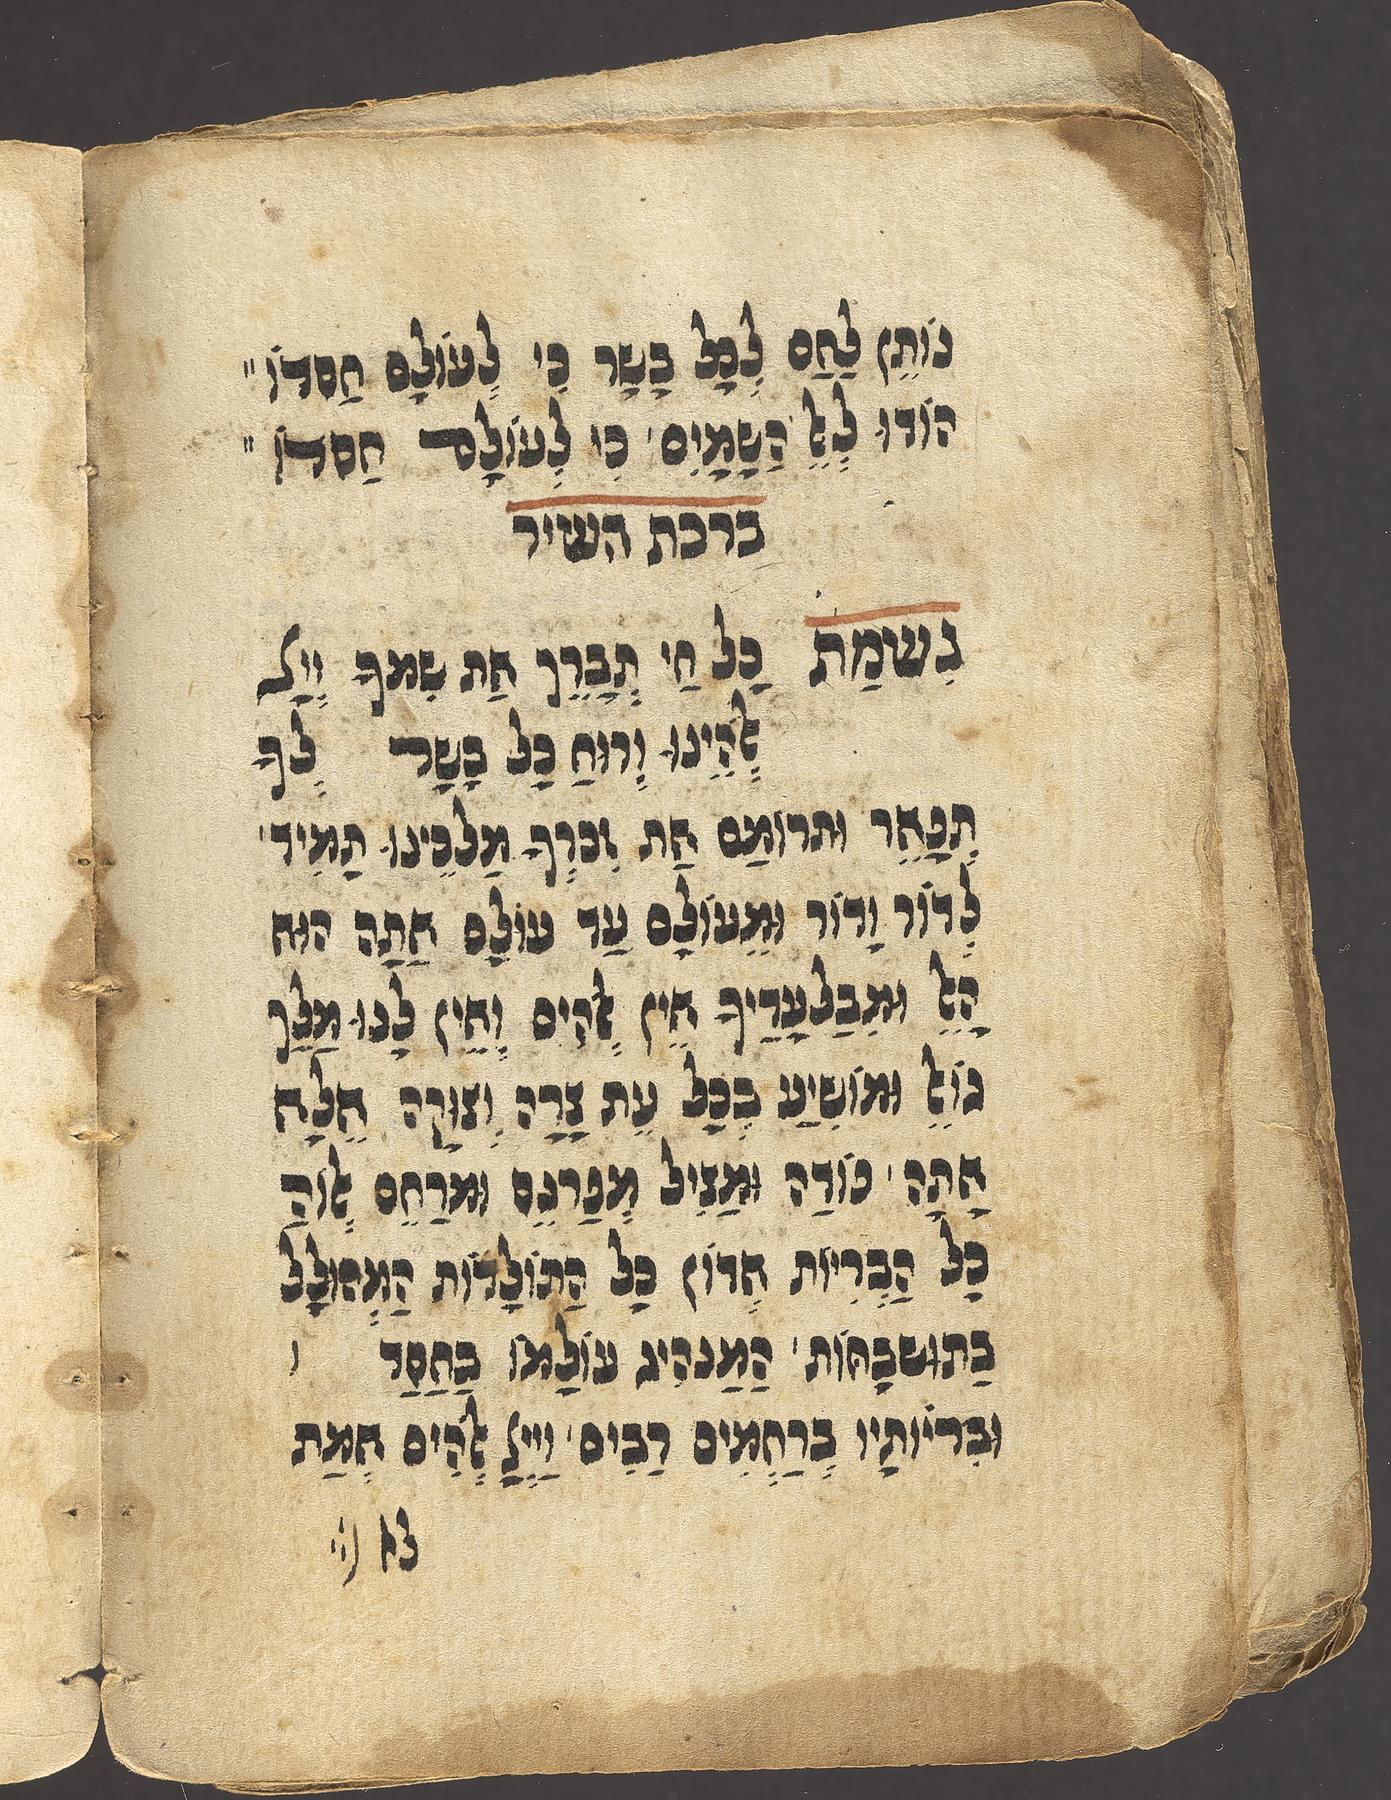 נוֹתֵן לַחַם לְכָל בָּשָׂר כִּי לְעוֹלָם חַסדוֹ״
הוֹדוּ לְאֵל הַשָּׁמָיִם׳ כִּי לְעוֹלָם חַסדוֹ״
ברכת השיר
נִשמַת כָּל חַי תְּבָרֵךְ אַת שִׁמךָ יְיָ
אֱלֹהֵינוּ וְרוּחַ כָּל בָּשָׂר לְךָ
תְּפָאֵר וּתרוֹמַם אַת זִכרְךָ מַלכֵּינוּ תָּמִיד׳
לְדוֹר וָדוֹר וּמֵעוֹלָם עַד עוֹלָם אַתָּה הוּא
הָאֵל וּמִבַּלעָדֵיךָ אֵין אֱלֹהִים וְאֵין לָנוּ מַלַךְ
גּוֹאֵל וּמוֹשִׁיעַ בְּכָל עֵת צָרָה וְצוּקָה אֵלָא
אַתָּה׳ פּוֹדֵה וּמַצִּיל מְפַרנֵס וּמרַחֵם אֱלוֹהַּ
כָּל הַבְּרִיּוֹת אֲדוֹן כָּל הַתּוֹלָדוֹת הַמְהוּלָל
בַּתוּשבָּחוֹת׳ הַמַנהִיג עוֹלָמוֹ בַּחַסַד ו
וּבִריּוֹתָיו בְּרַחֲמִים רַבִּים׳ וַייָ אֱלֹהִים אֱמַת
לא ין״